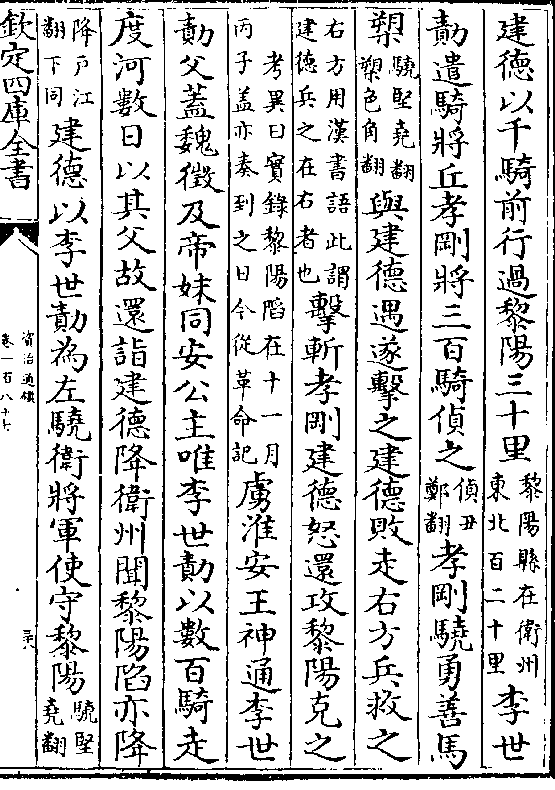 建德以千騎前行過黎陽三十里黎陽縣在衛州東北百二十里李世
勣遣騎將丘孝剛將三百騎偵之偵丑鄭翻孝剛驍勇善馬
槊驍堅堯翻槊色角翻與建德遇遂擊之建德敗走右方兵救之
右方用漢書語此謂建德兵之在右者也擊斬孝剛建德怒還攻黎陽克之
考異曰實錄黎陽陷在十一月丙子蓋亦奏到之日今從革命記虜淮安王神通李世
勣父蓋魏徵及帝妹同安公主唯李世勣以數百騎走
度河數日以其父故還詣建德降衛州聞黎陽陷亦降
降戶江翻下同建德以李世勣為左驍衛將軍使守黎陽驍堅堯翻
欽定四庫全書
資治通鑑
卷一百八十七
三十八